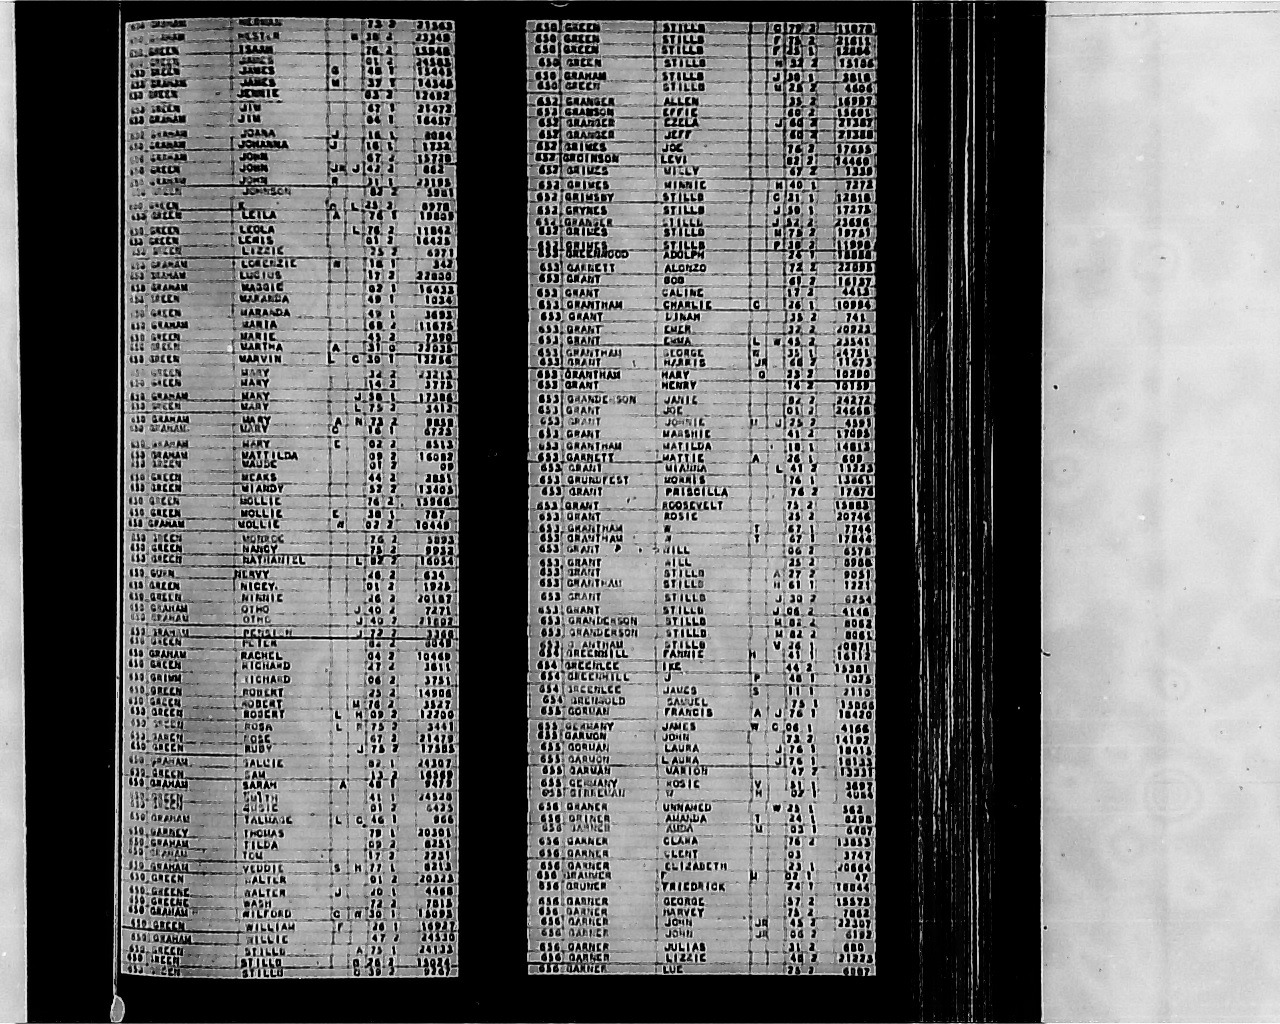 650 GRAHAM HERMAN 73 2 21563
650 GRAHAM HESTER W 38 2 23348
650 GREEN ISAAH 76 2 15848
650 GREEN JAMES 01 2 24565
650 GREEN JAMES G 48 1 15445
650 GRAHAM JAMES M 37 1 14348
650 GREEN JENNIE 63 2 12692
650 GREEN JIM 67 1 21472
650 GRAHAM JIM 04 1 16457
650 GRAHAM JOANA J 16 1 8084
650 GRAHAM JOHANNA J 16 1 1732
650 GRAHAM JOHN 67 2 15728
650 GRAHAM JOHN JR J 42 2 862
650 GRAHAM JOHN R 31 1 23195
650 GREEN JOHNSON 82 2 5981
650 GREEN L 25 2 8978
650 GREEN LEILA A 76 1 19809
650 GREEN LEOLA L 76 2 11862
650 GREEN LEWIS 01 2 16425
650 GREEN LIZZIE 75 2 6971
650 GRAHAM LORENZIE W 18 1 342
650 GRAHAM LUCIUS 17 2 22800
650 GRAHAM MAGGIE 02 1 16433
650 GREEN MARANDA 49 1 1034
650 GREEN MARANDA 49 1 3693
650 GRAHAM MARIA 68 2 11675
650 GREEN MARIE 45 2 7390
650 GREEN MARTHA A 31 0 22035
650 GREEN MARVIN L C 30 1 12256
650 GREEN MARY 32 2 23213
650 GREEN MARY 14 2 3775
650 GRAHAM MARY J 58 1 17386
650 GREEN MARY L 75 2 3412
650 GRAHAM MARY A N 75 2 9859
650 GRAHAM MARY C 16 1 6723
650 GRAHAM MARY E 02 2 6513
650 GRAHAM MATTILDA 09 2 16082
650 GREEN MAUDE 01 2 09
650 GREEN MEAKS 44 2 2851
650 GREEN MIANDY 57 2 13403
650 GREEN MOLLIE 76 2 15966
650 GREEN MOLLIE E 38 1 787
650 GRAHAM MOLLIE W 02 2 10448
650 GREEN MONROE 76 2 3893
650 GREEN NANCY 75 2 9952
650 GREEN NATHANIEL L 82 2 16054
650 NERVY 26 2 634
650 GREEN NICEY 01 2 1925
650 GREEN NINNIE 26 2 20187
650 GRAHAM OTHO J 40 2 7271
650 GRAHAM OTHO J 40 2 21602
650 GRAHAM J 72 2 3366
650 GREEN PETER 82 2 8048
650 GRAHAM RACHEL 04 2 10468
650 GREEN RICHARD 27 2 3811
650 GRIMM RICHARD 06 2 3751
650 GREEN ROBERT 25 2 14906
650 GREEN ROBERT M 76 2 3527
650 GREEN ROBERT L H 09 2 12200
650 GREEN ROSA L F 75 2 3441
650 GREEN ROSE 67 2 21473
650 GREEN RUBY J 75 2 17585
650 GRAHAM SALLIE 82 1 24307
650 GREEN SAM 13 2 16569
650 GRAHAM SARAH A 48 1 9475
650 GREEN SMITH 41 1 24528
650 GREEN SUSIE 01 2 6425
650 GRAHAM TALMAGE L C 46 1 966
650 GARNEY THOMAS 79 1 20301
650 GREEN TILDA 09 2 8251
650 GRAHAM TOM 17 2 2231
650 GRAHAM VEDDIE S H 77 1 8213
650 GREEN WALTER 01 2 20325
650 GREENE WALTER J 20 1 4468
650 GREEN WASH 72 2 7815
650 GRAHAM WILFORD C W 30 1 15095
650 GREEN WILLIAM F 26 1 16927
650 GRAHAM WILLIE 47 2 24530
650 GREEN STILLB A 75 1 24133
650 GREEN STILLB B 26 2 15024
650 GREEN STILLB C 39 2 9247
650 GREEN STILLB C 79 2 11078
650 GREEN STILLB F 75 2 21611
650 GREEN STILLB F 25 1 12884
650 GREEN STILLB H 32 2 15106
650 GRAHAM STILLB J 30 1 3816
650 GREEN STILLB M 25 2 4606
652 GRANGER ALLEN 35 2 16997
653 GRAMSON EFFIE 60 2 15601
652 GRANGER EZELA J 60 2 21387
652 GRANGER JEFF 60 2 21388
652 GRIMES JOE 76 2 17655
652 GROINSON LEVI 82 2 14460
652 GRIMES MILLY 67 2 1339
652 GRIMES MINNIE H 40 1 7272
652 GRIMSBY STILLB C 21 1 12816
652 GRYNES STILLB J 50 1 17275
652 GRANGER STILLB J 52 2 23656
652 GRIMES STILLB M 75 2 19751
652 GRIMES STILLB P 38 2 11998
653 GREENWOOD ADOLPH 24 1 18888
653 GARNETT ALONZO 72 2 22895
653 GRANT BOB 67 2 16737
653 GRANT CALINE 17 2 4413
653 GRANTHAM CHARLIE C 26 1 10994
653 GRANT DINAH 35 2 741
653 GRANT EMER 32 2 20923
653 GRANT EMMA L W 45 2 23541
653 GRANTHAM GEORGE W 35 1 24751
653 GRANT HARRIS JR 66 2 11673
653 GRANTHAM HARY O 25 2 10290
653 GRANT HENRY 14 2 10159
653 GRANDERSON JANIE 82 2 24272
653 GRANT JOE 01 2 24668
653 GRANT JOHNIE H J 75 2 4591
653 GRANT MARSHIE 41 2 17095
653 GRANTHAM MATILDA 18 1 14813
653 GARNETT MATTIE A 26 1 608
653 GRANT MIANNA L 41 2 11223
653 GRUNDFEST MORRIS 76 1 13861
653 GRANT PRISCILLA 76 2 17676
653 GRANT ROOSEVELT 75 2 15883
653 GRANT ROSIE 25 2 20746
653 GRANTHAM W T 67 1 7744
653 GRANTHAM W T 67 1 17844
653 GRANT WILL 06 2 6576
653 GRANT WILL 25 2 8988
653 GRANT STILLB A 27 2 9051
653 GRANTHAM STILLB H 61 1 1221
653 GRANT STILLB J 30 2 6754
653 GRANT STILLB J 06 2 4146
653 GRANDERSON STILLB M 82 2 8062
653 GRANDERSON STILLB M 82 2 8061
653 GRANTHAM STILLB V 26 1 20871
654 GREENHILL FANNIE H 41 1 16112
654 GREENLEE IKE 44 2 15381
654 GREENHILL J P 48 1 1325
654 GREENLEE JAMES S 11 1 2110
654 GREENWOLD SAMUEL 75 1 15066
655 GORMAN FRANCIS A J 76 1 18420
655 GERMANY JAMES W C 06 1 4166
655 GARMON JOHN 73 2 14192
655 GORMAN LAURA J 76 1 18415
655 GARMON LAURA J 76 1 18133
655 GARMAN MARION 47 2 13331
655 GERMANY ROSIE V 51 1 3697
W H 02 2 4084
656 GRANER UNNAMED W 25 1 562
656 GRINER AMANDA T 24 1 8298
656 GARNER AUDA M 03 1 6487
656 GARNER CLARA 76 2 13853
656 GARNER CLENT 03 3747
656 GARNER ELIZABETH 23 1 20664
656 GRAUMER F M 02 1 47
656 GRUNER FRIEDRICK 24 1 18844
656 GARNER GEORGE 57 2 15573
656 GARNER HARVEY 75 2 7862
656 GARNER JOHN JR 45 2 22307
656 GARNER JOHN JR 06 2 592
656 GARNER JULIAS 31 2 680
656 GARNER LIZZIE 48 2 21223
656 GARNER LUE 25 2 6897